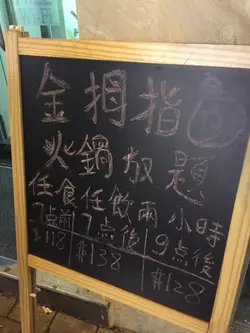 金拇指
火鍋放題
任食任飲兩小時
7点前 7点後 9点後
$118 $138 $128